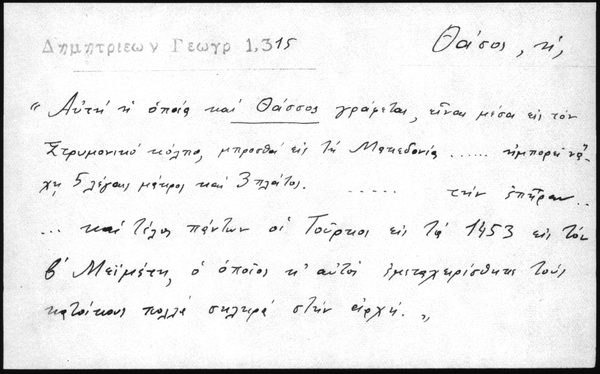 Δημητριεων Γεωγρ 1,315
Θάσος, ἡ,
"Αὐτὴ ἡ ὁποία καὶ Θάσσος γράφεται, εἶναι μέσα εἰς τὸν
Στρυμονικὸ κόλπο, μπροσθὰ εἰς τὴ Μακεδονία ...... ἠμπορεῖ νἄ-
χῃ 5 λέγαις μάκρος καὶ 3 πλάτος. ..... τὴν ἐπῆραν..
... καὶ τέλος πάντων οἱ Τοῦρκοι εἰς τὰ 1453 εἰς τὸν
β' Μεϊμέτη, ὁ ὁποῖος κ' αὐτὸς ἐμεταχειρίσθηκε τοὺς
κατοίκους πολλὰ σκληρὰ στὴν ἀρχή."